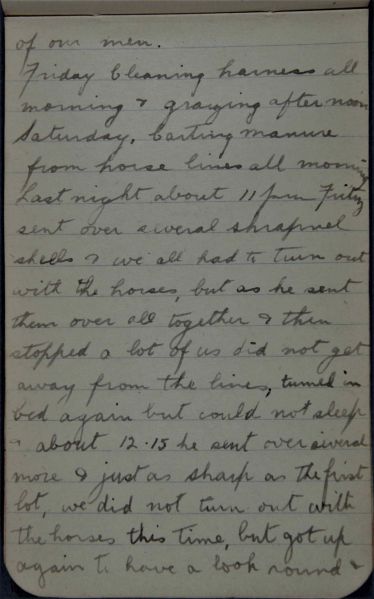 of our men.
Friday Cleaning harness all
morning & grazing afternoon
Saturday. Carting manure
from horse lines all morning
Last night about 11 pm Fritz
sent over several shrapnel
shells & we all had to turn out
with the horses, but as he sent
them over all together & then
stopped a lot of us did not get
away from the lines, turned in
bed again but could not sleep
& about 12.15 he sent over several
more & just as sharp as the first
lot, we did not turn out with
the horses this time, but got up
again to have a look round &